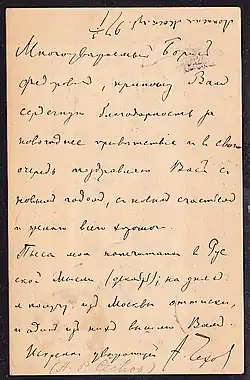 Многоуважаемый Борис
Федорович, приношу Вам
сердечную благодарность за
новогоднее приветствие и в свою
очередь поздравляю Вас с
новым годом, с новым счастьем
и желаю всего хорошего.
Пьеса моя напечатана в Рус
ской Мысли (декабрь); на днях
я получу из Москвы оттиски,
и один из них вышлю Вам.
Искренно уважающий А. Чехов